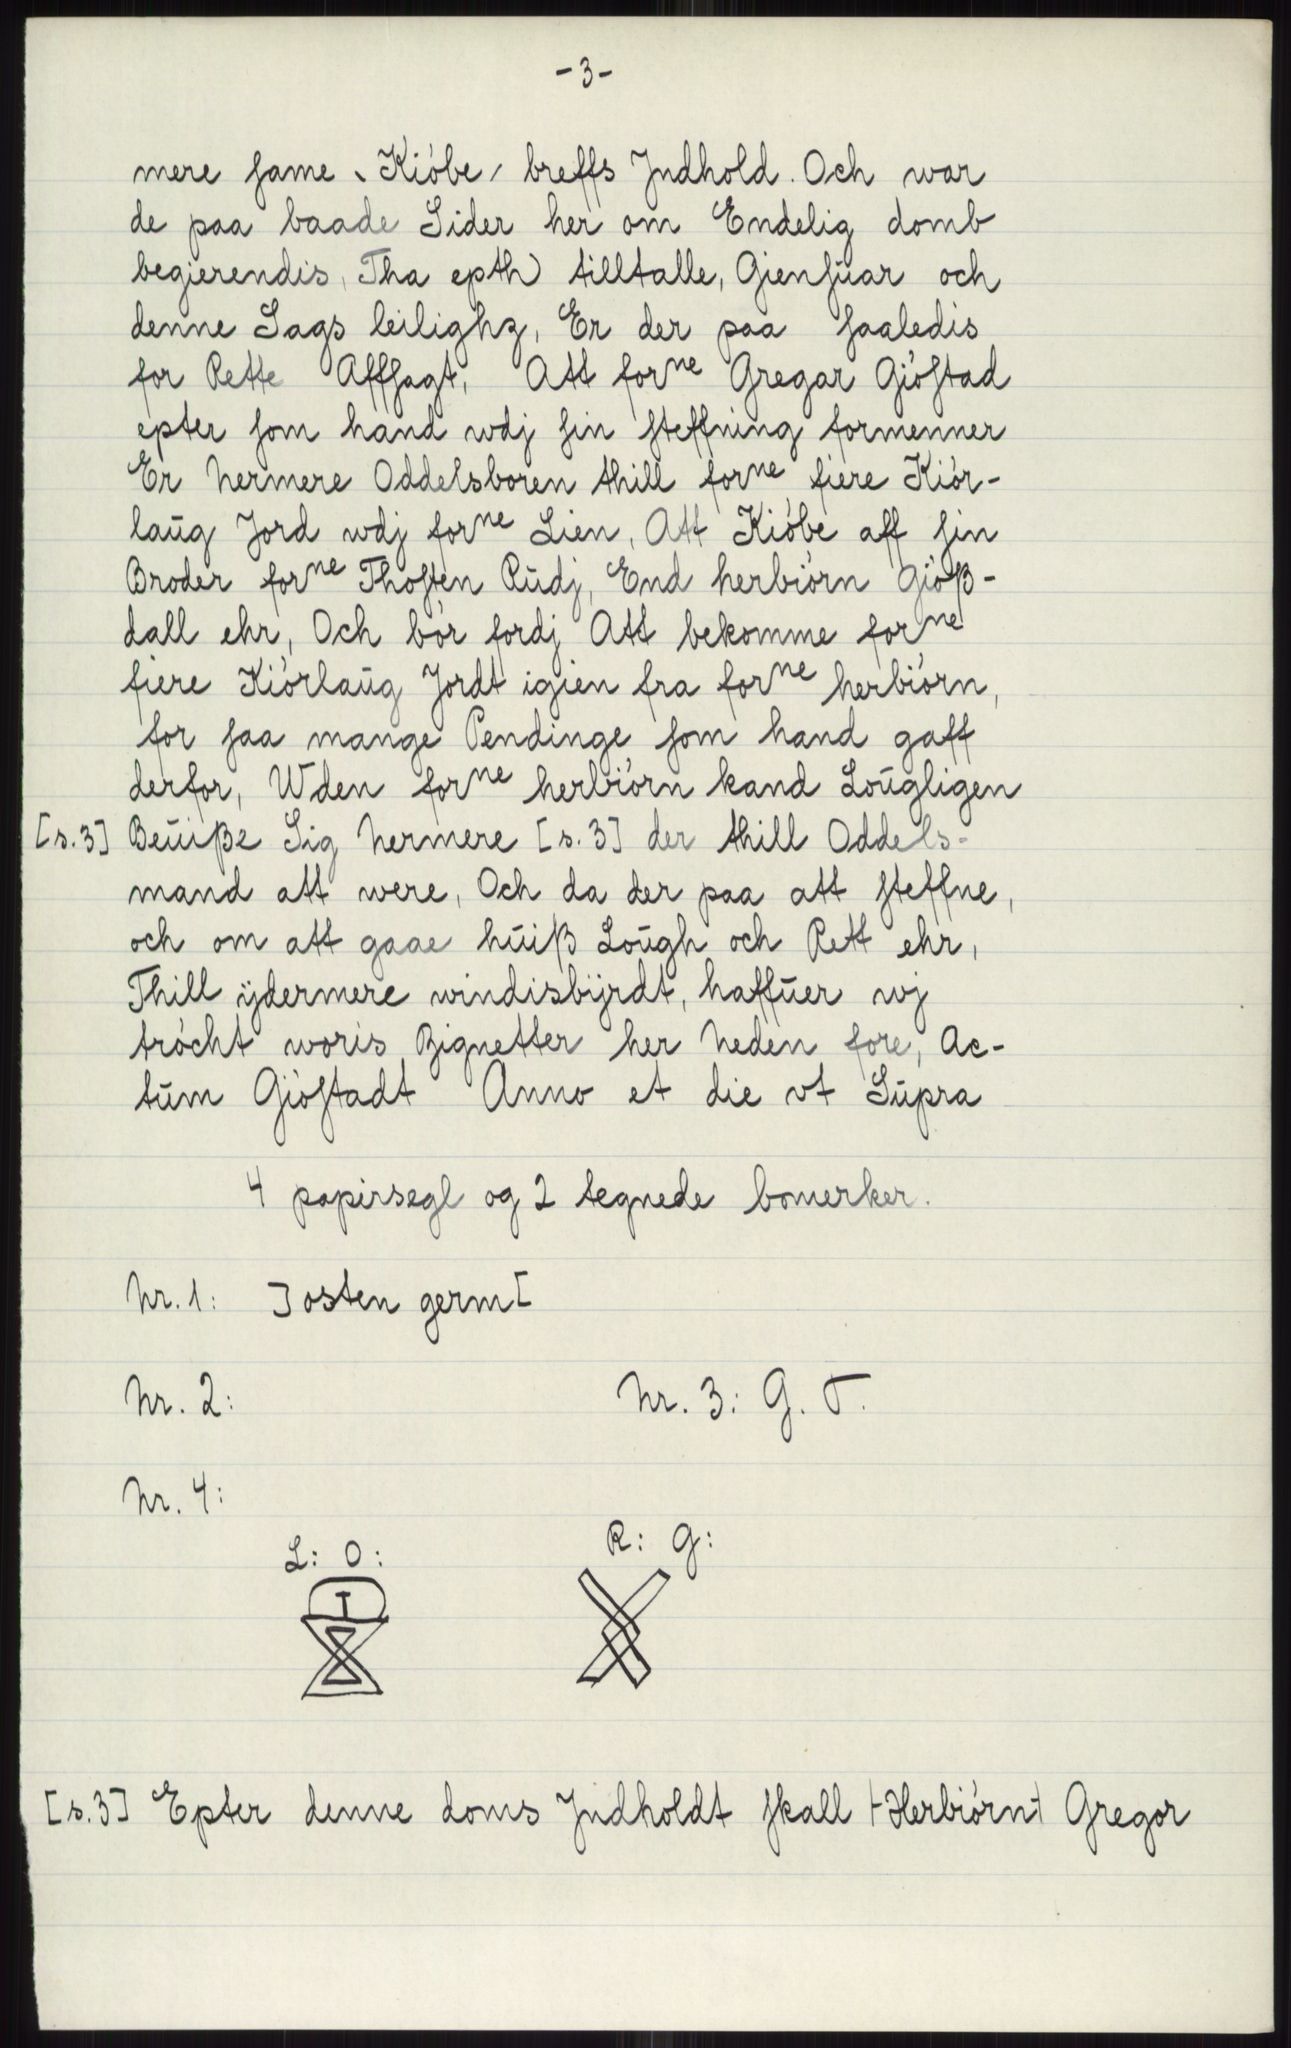 -3-
mere same ˎ Kióbe ˏ breffs Jndhold. Och war
de paa baade Sider her om Endelig domb
begierendis, Tha epth) tilltalle, Giensūar och
denne Sags leilighz, Er der paa saaledis
for Rette Affsagt, Att forne Gregar Gióstad
epter som hand wdj sin steffning formenner
Er Nermere Oddelsboren thill forne fiere Kiór-
laūg Jord wdj forne Lien, Att Kióbe aff sin
Broder forne Thosten Rūdj, End herbiórn Gióß-
dall ehr, Och bór fordj Att bekomme forne
fiere Kiórlaūg Jordt igien fra forne herbiórn,
for saa mange Pendinge som hand gaff
derfor, Uden forne herbiórn kand Loūgligen
[s.3] Beūiße Sig Nermere [s.3] der thill Oddels-
mand att were, Och da der paa att steffne,
och om att gaae hūiß Loūgh och Rett ehr,
Thill ÿdermere windisbÿrdt, haffūer wj
trócht woris Zignetter her Neden fore, Ac-
tūm Gióstadt Anno et die vt Sūpra
4 papirsegl og 2 tegnede bomerker.
Nr. 1: ]osten germ[
Nr. 2: Nr. 3: G. T.
Nr. 4:
L: O: R: G:
[s.3] Epter denne doms Jndholdt skall ⟊Herbiórn⟊ Gregor